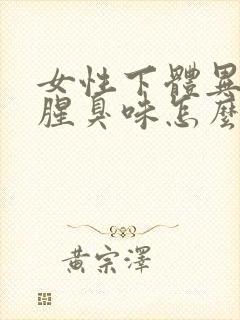 女性下體異
腥臭味怎麼
黃宗澤